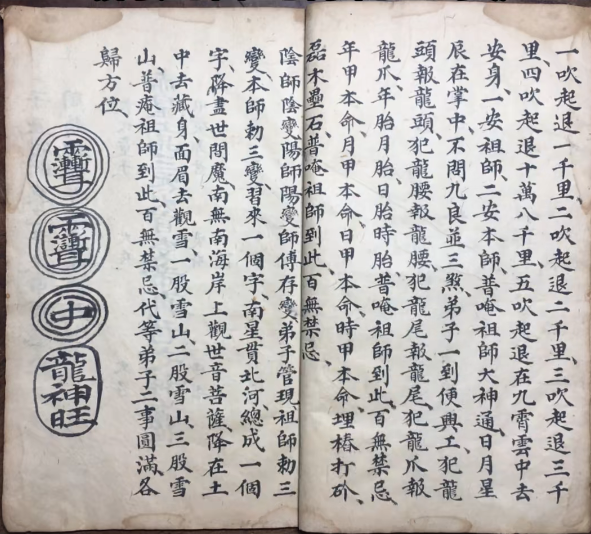 一吹起退一千里、二吹起退二千里、三吹起退三千
里、四吹起退十萬八千里、五吹起退在九霄雲中去
安身、一安祖師、二安本師、普唵祖師大神通、日月星
辰在掌中、不問九良並三煞、弟子一到便興工、犯龍
頭報龍頭、犯龍腰報龍腰、犯龍尾報龍尾、犯龍爪報
龍爪、年胎月胎日胎時胎、普唵祖師到此、百無禁忌、
年甲本命、月甲本命、日甲本命、時甲本命、埋樁打砂、
磊木壘石、普唵祖師到此、百無禁忌、
陰師陰變陽師陽變師傅存變、弟子管現、祖師勅三
變、本師勅三變、習來一個字、南星貫北河、總成一個
字、解盡世間魔、南無南海岸上觀世音菩薩、降在土
中去藏身、面眉去觀雪一股雪山、二股雪山、三股雪
山普庵祖師到此、百無禁忌、代等弟子二事圓滿、各
歸方位、
中
龍神旺